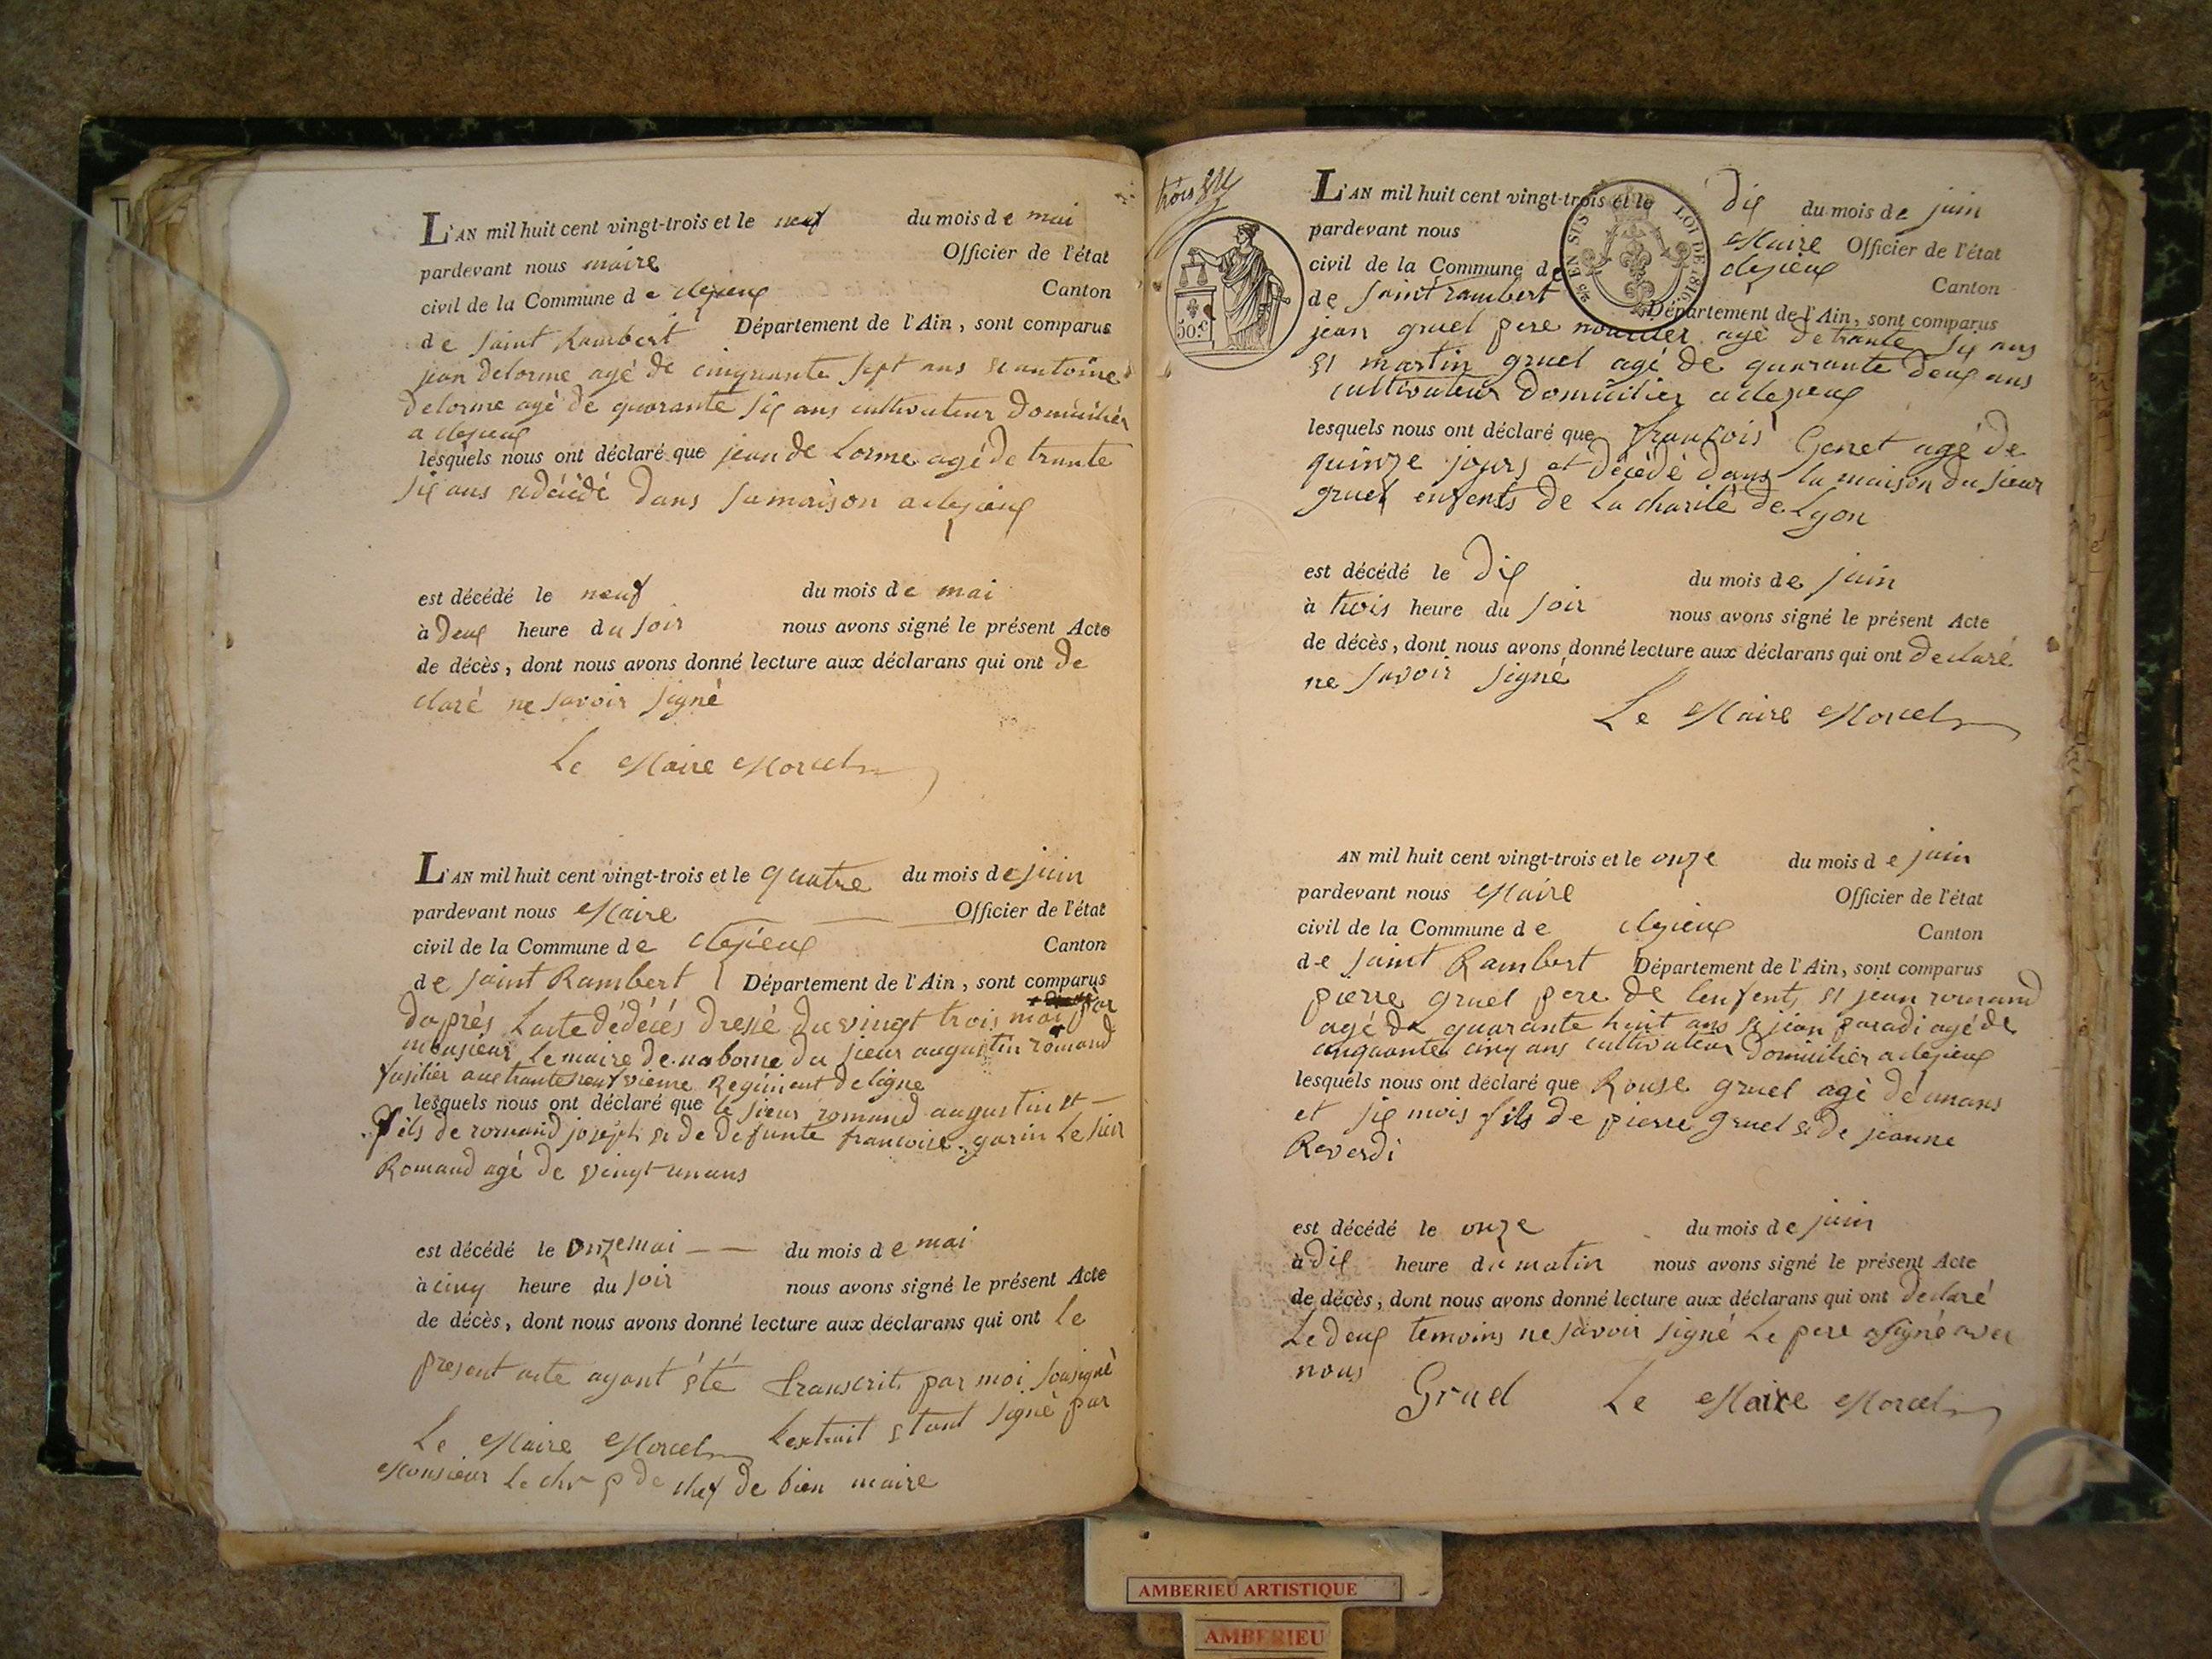 L'AN mil huit cent vingt-trois et le neuf du mois de mai
pardevant nous maire Officier de l'état
civil de la Commune de clezieux Canton
de saint Rambert Département de l'Ain, sont comparus
jean delorme agé de cinquante sept ans et antoine
delorme agé de quarante six ans cultivateur domicilier
a clezieux
lesquels nous ont déclaré que jean de Lorme agé de trante
six ans decédé dans sa maison a clezieux
est décédé le neuf du mois de mai
à deux heure du soir nous avons signé le présent Acte
de décès, dont nous avons donné lecture aux déclarans qui ont de
claré ne savoir signé
Le Maire Morcel
L'AN mil huit cent vingt-trois et le quatre du mois de juin
pardevant nous Maire Officier de l'état
civil de la Commune de clezieux Canton
de saint Rambert Département de l'Ain, sont comparus
daprés Lacte dédécés dressé du vingt trois mai par
monsieur Le maire de nabonne du sieur augustin romand
fusilier aux trante neuf vieme Regiment de ligne
lesquels nous ont déclaré que le sieur romand augustin et
fils de romand joseph et de defunte francoise garin Le sieur
Romand agé de vingt un ans
est décédé le onze mai du mois de mai
à cinq heure du soir nous avons signé le présent Acte
de décès, dont nous avons donné lecture aux déclarans qui ont le
present acte ayant été transcrit par moi sousigné
Le Maire Morcel Lextrait etant signé par
Monsieur Le chr de chef de bien maire
trois
30.c
EN SUS LOI DE 1816
L'AN mil huit cent vingt-trois et le dix du mois de juin
pardevant nous Maire Officier de l'état
civil de la Commune de clezieux Canton
de saint rambert Département de l'Ain, sont comparus
jean gruel pere agé de trante six ans
et martin gruel agé de quarante deux ans
cultivateur domicilier a clezieux
lesquels nous ont déclaré que francois Genet agé de
quinze jours et décédé dans la maison du sieur
gruel enfents de La charité de Lyon
est décédé le dix du mois de juin
à trois heure du soir nous avons signé le présent Acte
de décès, dont nous avons donné lecture aux déclarans qui ont declaré
ne savoir signé
Le Maire Morcel
AN mil huit cent vingt-trois et le onze du mois de juin
pardevant nous Maire Officier de l'état
civil de la Commune de clezieux Canton
de saint Rambert Département de l'Ain, sont comparus
pierre gruel pere de lenfent et jean romand
agé de quarante huit ans et jean paradi agé de
cinquante cinq ans cultivateur domicilier a clezieux
lesquels nous ont déclaré que Rouse gruel agé de un ans
et six mois fils de pierre gruel et de jeanne
Reverdi
est décédé le onze du mois de juin
à dix heure du matin nous avons signé le présent Acte
de décès, dont nous avons donné lecture aux déclarans qui ont declaré
Le deux temoins ne savoir signé Le pere a signé avec
nous
Gruel Le Maire Morcel
AMBERIEU ARTISTIQUE
AMBERIEU